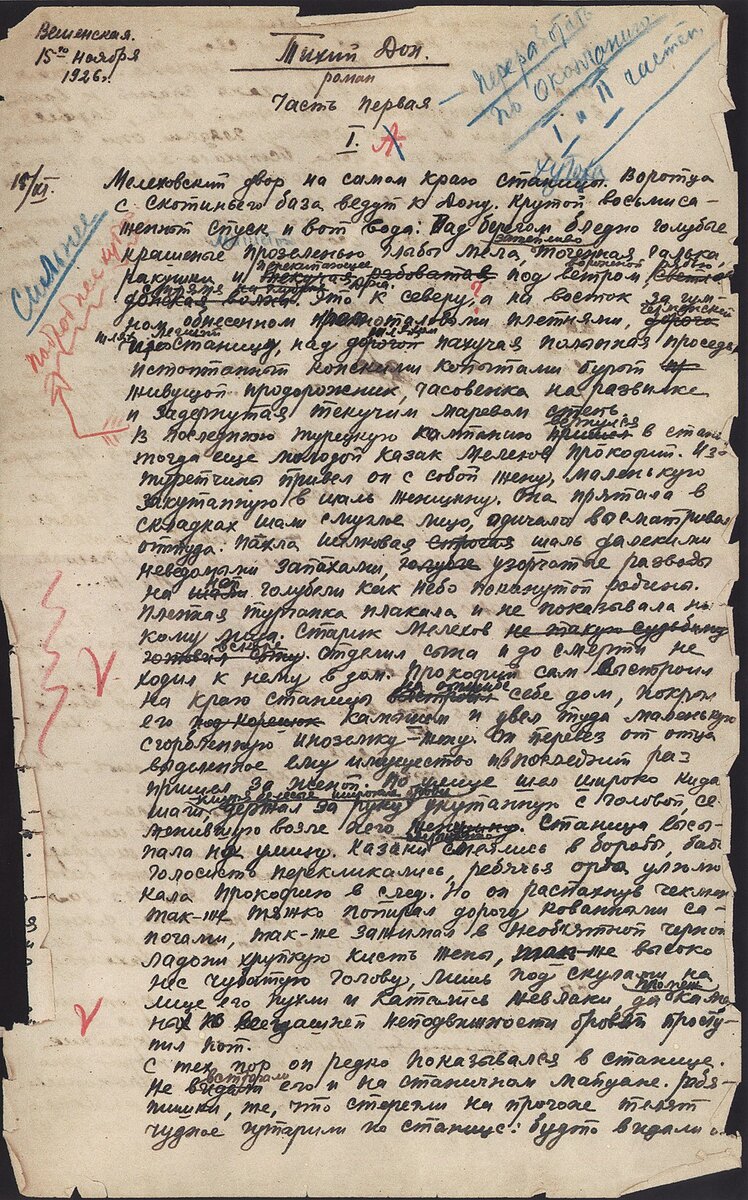 Вешенская.
15го ноября
1926г.
Тихий Дон.
роман
Часть первая
I.
— Переработать
по окончанию
I и II частей
15/XI.
хутора
Мелеховский двор на самом краю станицы. Воротца
с скотиньего база ведут к Дону. Крутой восьмиса-
женный спуск и вот вода: Над берегом бледно голубые
Сильнее
подробнее
крашеные прозеленью глыбы мела, точенная галька,
ракушки и перекипающее под ветром,
стремя Дона.
донская волны. Это к северу, а на восток за гум-
ном обнесенном плетнями,
станицу, над дорогой пахучая полынная проседь
истоптанный конскими копытами бурый
живущой придорожник, часовенка на развилке
и задернутая текучим маревом степь
В последнюю турецкую кампанию вернулся в стан.
тогда еще молодой казак Мелехов Прокофий. Из
туретчины привел он с собой жену, маленькую
закутанную в шаль женщину. Она прятала в
складках шали смуглое лицо, одичало высматривая
оттуда. Пахла шелковая строгая шаль далекими
неведомыми запахами, голубые узорчатые разводы
на ней голубели как небо покинутой родины.
Пленная турчанка плакала и не показывала ни-
кому лица. Старик Мелехов не такую судьбину
готовил сыну. вскоре отделил сына и до смерти не
ходил к нему в дом. Прокофий сам выстроил
на краю станицы себе дом, покрыл
его камышом и увел туда маленькую
сгорбленную иноземку-жену. Он перевез от отца
выделенное ему имущество и в последний раз
пришел за женой. По улице шел широко кидая
шаги, держал за руку укутанную с головой се-
менившую возле него женщину. Станица высы-
пала на улицу. Казаки смеялись в бороды, бабы
голосисто перекликались, ребячья орда улюлю-
кала Прокофию в след. Но он распахнув чекмень
так-же тяжко попирал дорогу кованными са-
погами, так-же зажимал в необъятной черной
ладони хрупкую кисть жены, так-же высоко
нес чубатую голову, лишь под скулами на
лице его пухли и катались желваки, да промеж каме-
ных в всегдашней неподвижности бровей просту-
пил пот.
С тех пор он редко показывался в станице.
Не видали его и на станичном майдане. Ребя-
тишки, те, что стерегли на прогоне телят
чудное гутарили по станице: будто видали